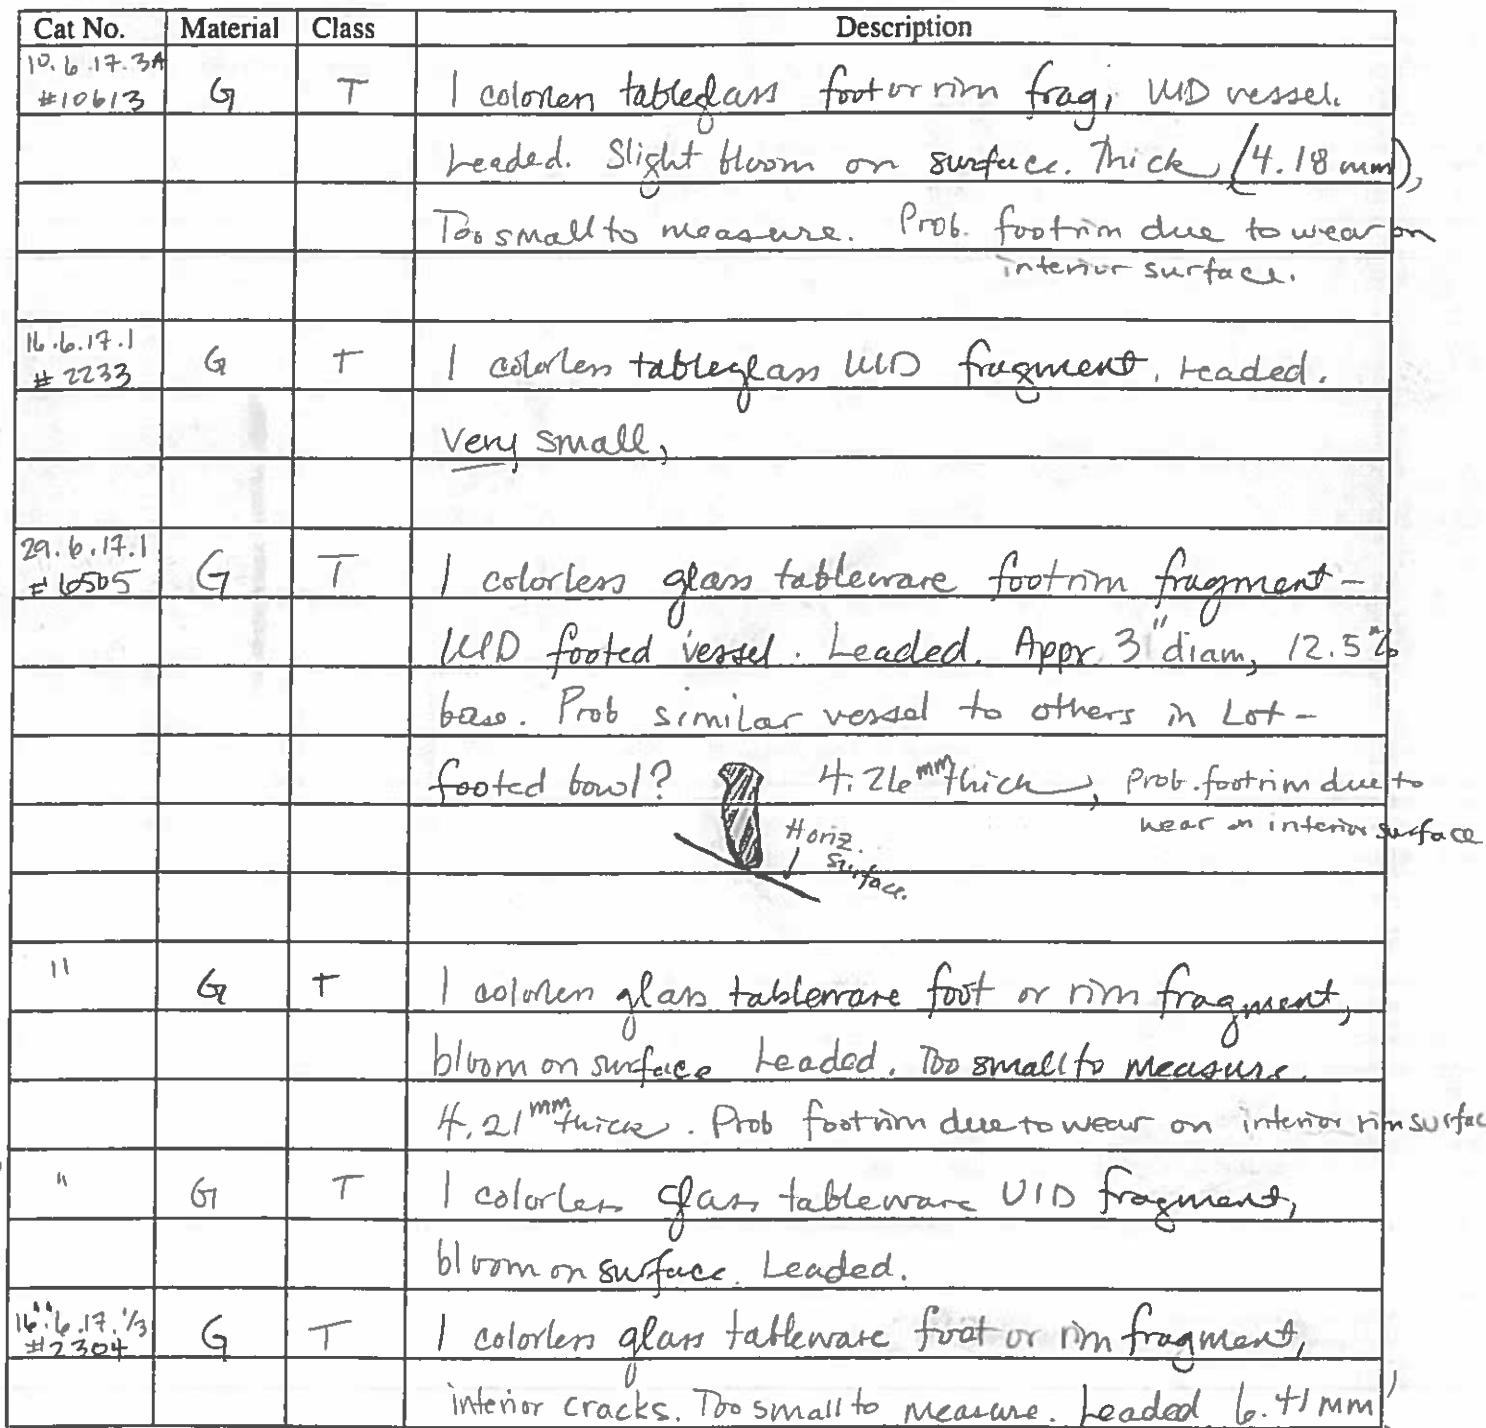 Cat No. Material Class Description
10.6.17.3A
#10613 G T 1 colorless tableglass foot or rim frag, UID vessel.
Leaded. Slight bloom on surface. Thick (4.18 mm),
Too small to measure. Prob. footrim due to wear on
interior surface.
16.6.17.1
#2233 G T 1 colorless tableglass UID fragment. Leaded.
Very small,
29.6.17.1
#6505 G T 1 colorless glass tableware footrim fragment –
UID footed vessel. Leaded. Appr. 3" diam, 12.5%
base. Prob similar vessel to others in Lot –
footed bowl? 4.26 mm thick, Prob. footrim due to
wear on interior surface
Horiz.
surface.
" G T 1 colorless glass tableware foot or rim fragment,
bloom on surface Leaded. Too small to measure.
4.21 mm thick. Prob footrim due to wear on interior rim surfac
" G T 1 colorless glass tableware UID fragment,
bloom on surface. Leaded.
16.6.17.1/3
#2304 G T 1 colorless glass tableware foot or rim fragment,
interior cracks. Too small to measure. Leaded 6.41 mm